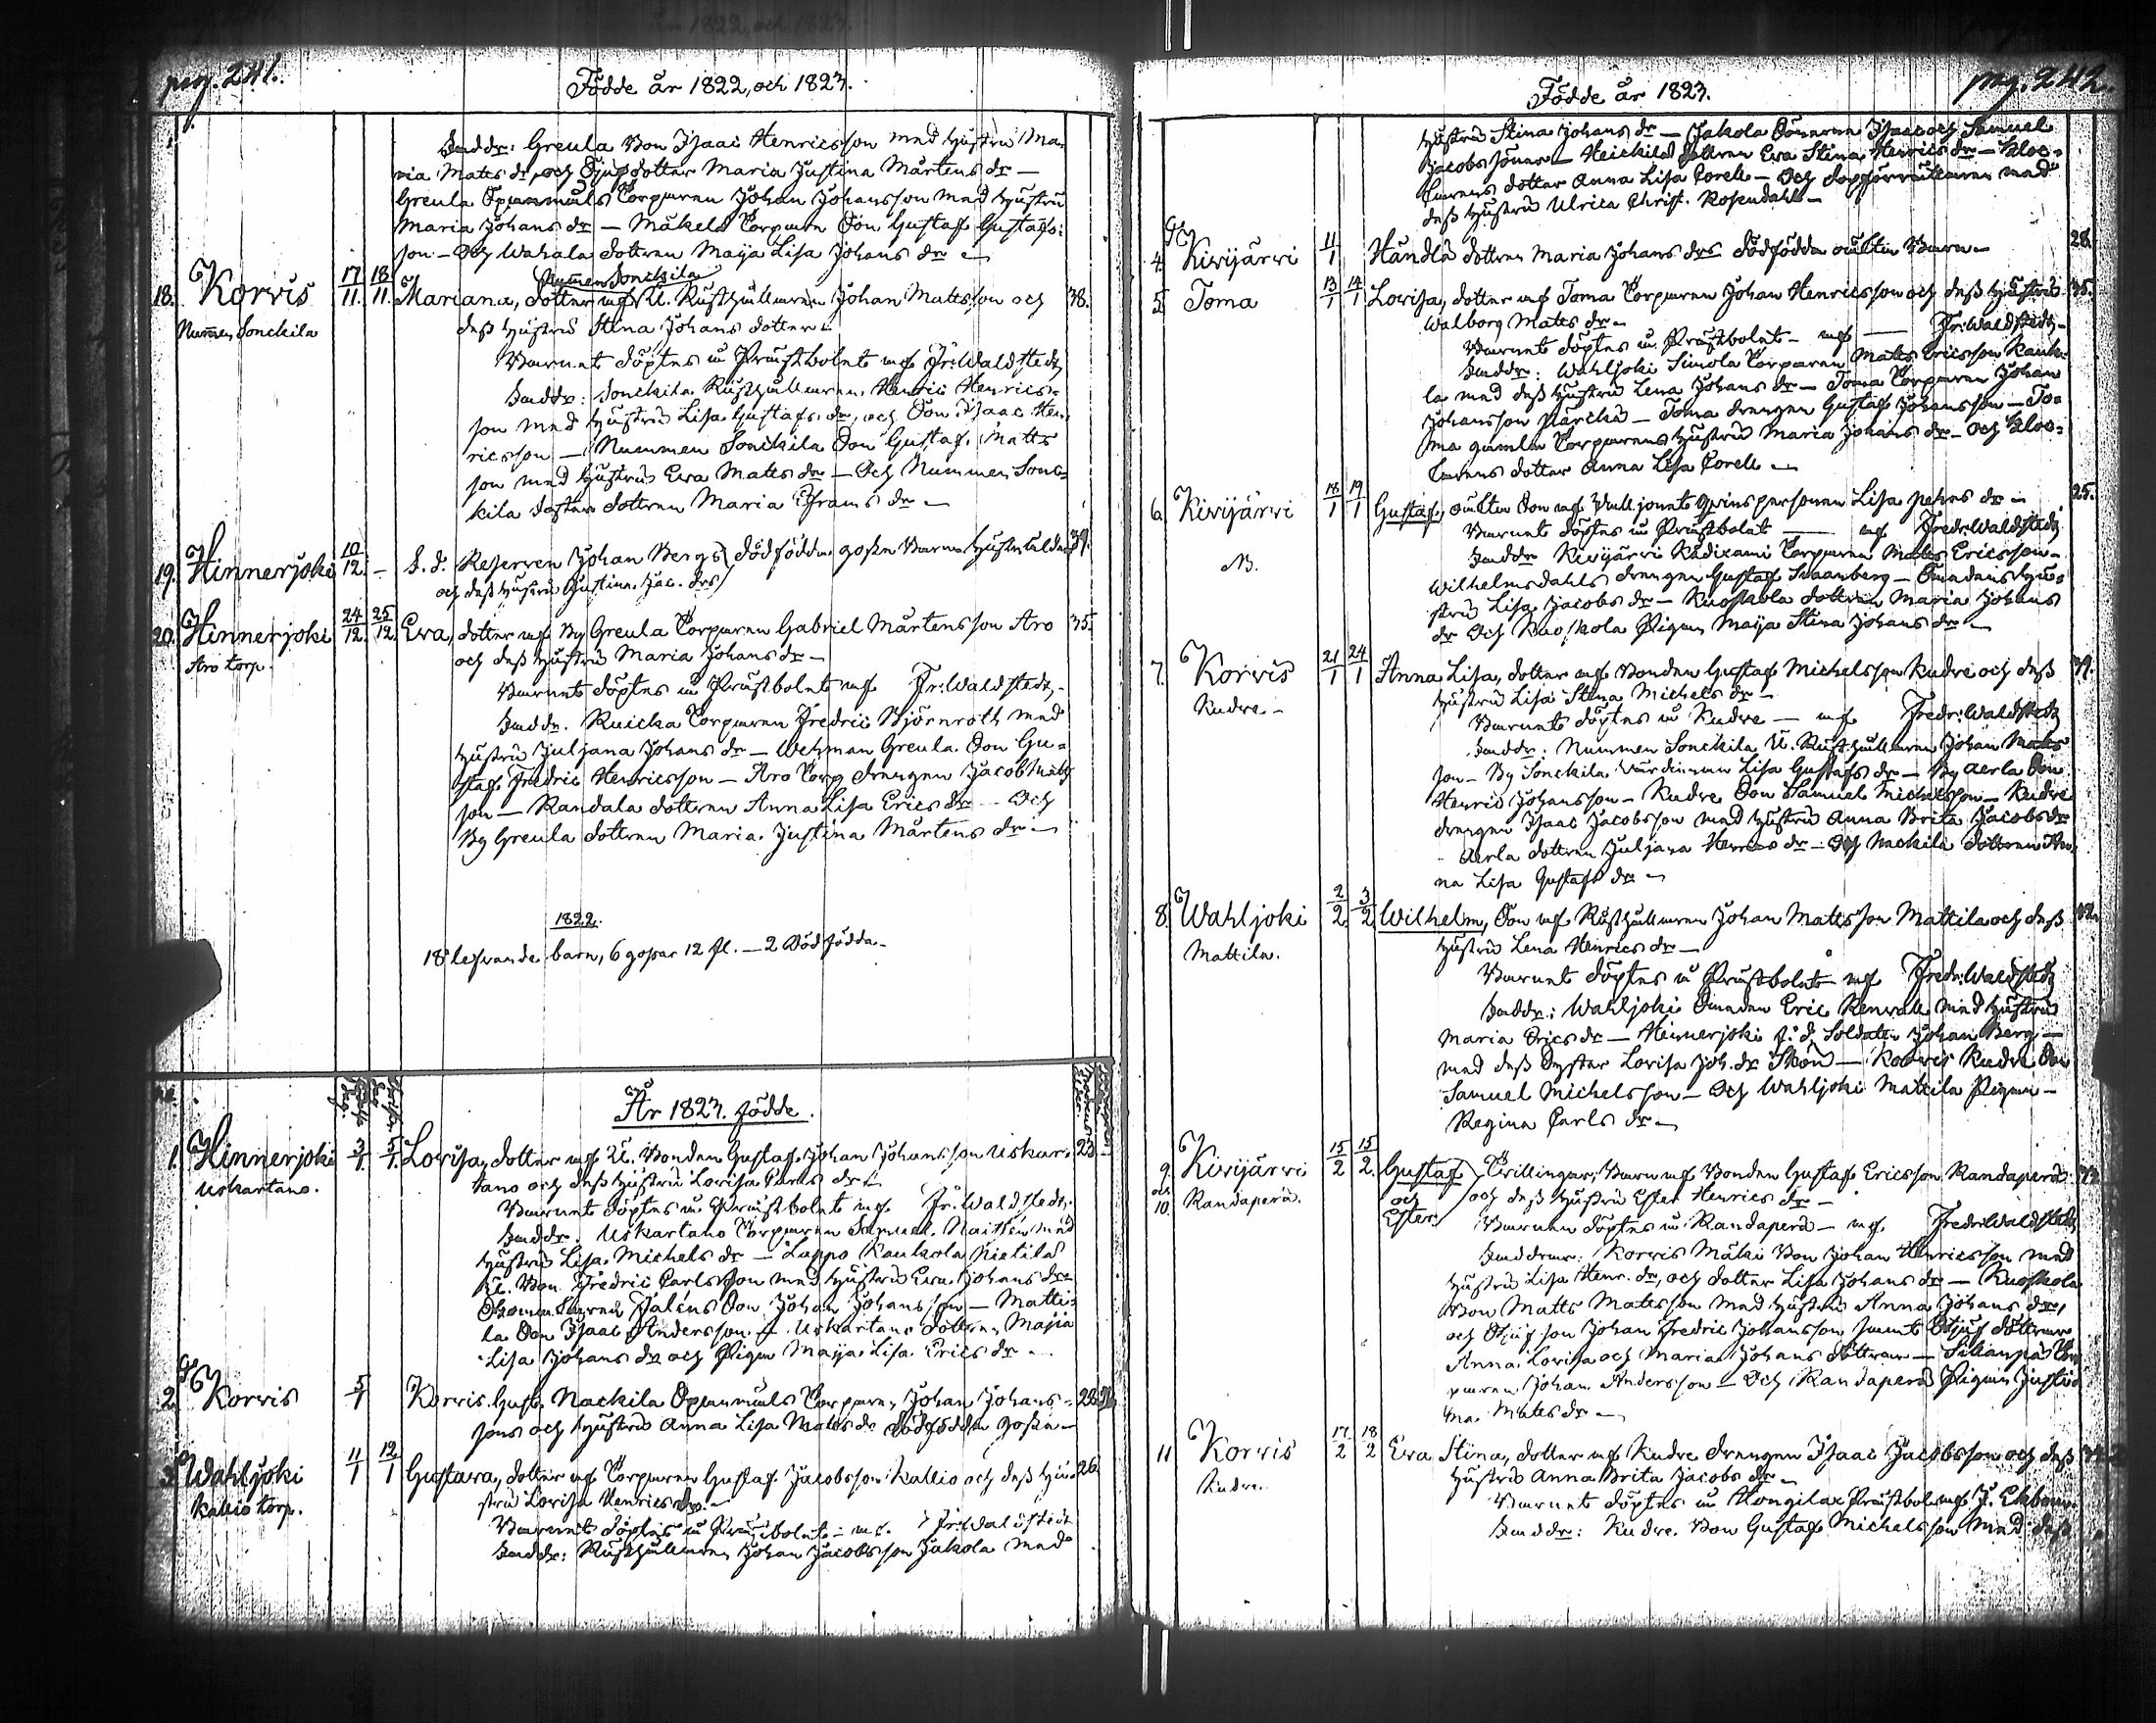 pag. 241.
Födde år 1822, och 1823.
Faddr: Greula Bon Isaac Henricsson med hustru Ma-
ria Matts dr, och Styfdotter Maria Justina Mårtens dr —
Greula Torparen Johan Johansson med hustru
Maria Johans dr — Mäkelä Torparen Son Gustaf Gustafs-
son — Och Wahala dottren Maija Lisa Johans dr —
18. Korvis 17/11. 18/11. Mariana, dotter af Nummen Sonckila U. Rusthållaren Johan Mattsson och 38.
Nummen Sonckila
dess hustru Stina Johans dotter —
Barnet döptes i Prästbolet af Fr: Waldstedt
Faddr: Sonckila Rusthållaren Henric Henrics-
son med hustru Lisa Gustafs dr, och Son Isaac Hen-
ricsson — Nummen Sonckila Son Gustaf Matts
son med hustru Eva Matts dr — Och Nummen Sonc-
kila dotter dottren Maria Efraims dr —
19. Hinnerjoki 10/12. — S. d. Reserven Johan Bergs dödfödda gosse Barn 39.
och dess hustru Justina Jac. drs
20. Hinnerjoki 24/12. 25/12. Eva, dotter af By Greula Torparen Gabriel Mårtensson Aro 35.
Aro torp.
och dess hustru Maria Johans dr —
Barnet döptes i Prästbolet af Fr: Waldstedt.
Faddr. Ruicka Torparen Fredric Björnroth med
hustru Juljana Johans dr — Wehman Greula Son Gu-
staf Fredric Henricsson — Aro Torp drengen Jacob Matts
son — Randala dottren Anna Lisa Erics dr — Och
By Greula dottren Maria Justina Mårtens dr —
1822.
18 lefvande barn, 6 gossar 12 fl. — 2 Dödfödda —
År 1823. födde.
1. Hinnerjoki 3/1. 5/1. Lovisa, dotter af U. Bonden Gustaf Johan Johansson Uskar- 23.
Uskartano.
tano och dess hustru Lovisa Carls dr —
Barnet döptes i Prästbolet af Fr: Waldstedt.
Faddr. Uskartano Torparen Samuel med
hustru Lisa Michels dr — Lappo Kaukola Kietilä
U. Bon. Fredric Carlsson med hustru Eva Johans dr —
Son Johan Johansson — Matti-
la Son Isaac Andersson — Uskartano dottren Maja
Lisa Johans dr och Pigan Maija Lisa Erics dr —
2. Korvis 5/1 Korvis Gust. Nackila Torparen Johan Johans-
sons och hustru Anna Lisa Matts dr dödfödda Gosse —
3. Wahljoki 11/1 12/1 Gustava, dotter af Torparen Gustaf Jacobsson Kallio och dess hu- 26.
Kallio torp.
stru Lovisa Henrics dr —
Barnet döptes i Prästbolet — af Fr: Waldstedt
Faddr: Rusthållaren Johan Jacobsson Jakola med
pag. 242.
Födde år 1823.
hustru Stina Johans dr — Jakola Sönerne Isaac och Samuel
Jacobs söner — Heickilä dottren Eva Stina Henrics dr — Kloc-
karens dotter Anna Lisa Corell — Och med
dess hustru Ulrica Christ. Rosendahl —
4. Kivijärvi 11/1 Händlä dottren Maria Johans drs dödfödda oäkta Barn — 28.
5. Toma 13/1 14/1 Lovisa, dotter af Toma Torparen Johan Henricsson och dess hustru 35.
Walborg Matts dr —
Barnet döptes i Prästbolet — af — Fr: Waldstedt —
Faddr: Wahljoki Simola Torparen Matts Ericsson Kauko-
la med dess hustru Lena Johans dr — Toma Torparen Johan
Johansson — Toma drengen Gustaf Johansson — To-
ma gamla Torparens hustru Maria Johans dr — Och Kloc-
karens dotter Anna Lisa Corell —
6. Kivijärvi 18/1 19/1 Gustaf, oäkta Son af Qvinspersonen Lisa dr — 25.
Barnet döptes i Prästbolet — af Fredr: Waldstedt
N.
Faddr Kivijärvi Torparen Matts Ericsson —
Wilhelmsdahls drengen Gustaf Svanberg — Smedens hu-
stru Lisa Jacobs dr — Ruoskola dottren Maria Johans
dr Och Ruoskola Pigan Maija Stina Johans dr —
7. Korvis 21/1 24/1 Anna Lisa, dotter af Bonden Gustaf Michelsson Kudre och dess 39.
Kudre —
hustru Lisa Stina Michels dr —
Barnet döptes i Kudre — af Fredr: Waldstedt
Faddr: Nummen Sonckila U. Rusthållaren Johan Matts
son — By Sonckila Värdinnan Lisa Gustafs dr — By Aerla Son
Henric Johansson — Kudre Son Samuel Michelsson — Kudre
drengen Isaac Jacobsson med hustru Anna Brita Jacobs dr
— Aerla dottren Juljana Henrics dr — Och Nackila dottren An-
na Lisa Gustafs dr —
8. Wahljoki 2/2. 3/2 Wilhelm, Son af Rusthållaren Johan Mattsson Mattila och dess 42.
Mattila.
hustru Lena Henrics dr —
Barnet döptes i Prästbolet af Fredr: Waldstedt
Faddr: Wahljoki Smeden Eric Renvall med hustru
Maria Erics dr — Heinerjoki f. d. Soldaten Johan Berg —
med dess Syster Lovisa Joh. dr — Korvis Kudre Son
Samuel Michelsson — Och Wahljoki Mattila Pigan —
Regina Carls dr —
9. Kivijärvi 15/2 15/2. Gustaf Tvillingar, Barn af Bonden Gustaf Ericsson Randaperä
och 10. Randaperä. och Ester och dess hustru Ester Henrics dr —
Barnen döptes i Randaperä — af Fredr: Waldstedt
Faddrar: Korvis Mäki Bon Johan Henricsson med
hustru Lisa Henr. dr, och dotter Lisa Johans dr — Ruoskola
Bon Matts Mattsson med hustru Anna Johans dr,
och Styfson Johan Fredric Johansson samt Styfdöttrar
Anna Lovisa och Maria Johans döttrar — Sillanpää Tor-
paren Johan Andersson — Och Randaperä Pigan Justi-
na Matts dr —
11 Korvis 17/2 18/2 Eva Stina, dotter af Kudre drengen Isaac Jacobsson och dess
Kudre.
hustru Anna Brita Jacobs dr —
Barnet döptes i Hongilax Prästbol af J. Ekbom.
Faddr: Kudre Bon Gustaf Michelsson med dess